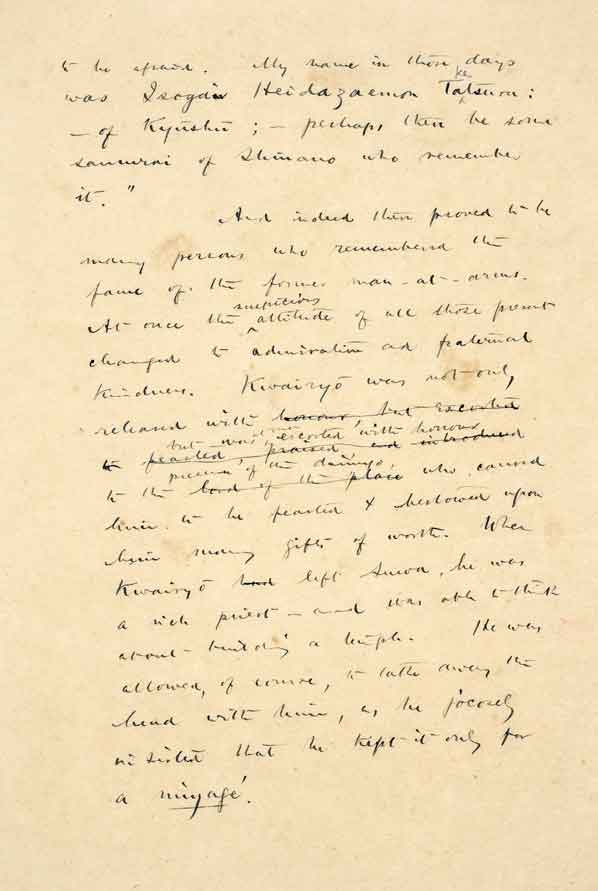 to be afraid. My name in those days
was Isogai Heidazaemon Tatsura:
ke
— of Kyūshū ; — perhaps there be some
samurai of Shinano who remember
it."
And indeed there proved to be
many persons who remembered the
fame of the former man-at-arms.
suspicious
At once the attitude of all those present
changed to admiration and fraternal
kindness. Kwairyō was not only
released with honour, but escorted
but was escorted with honour
to feasted, praised and introduced
presence of the daimyō,
to the lord of the place who caused
him to be feasted & bestowed upon
him many gifts of worth. When
Kwairyō had left Suwa, he was
a rich priest — and was able to think
about building a temple. He was
allowed, of course, to take away the
head with him, as he jocosely
insisted that he kept it only for
a miyagé.